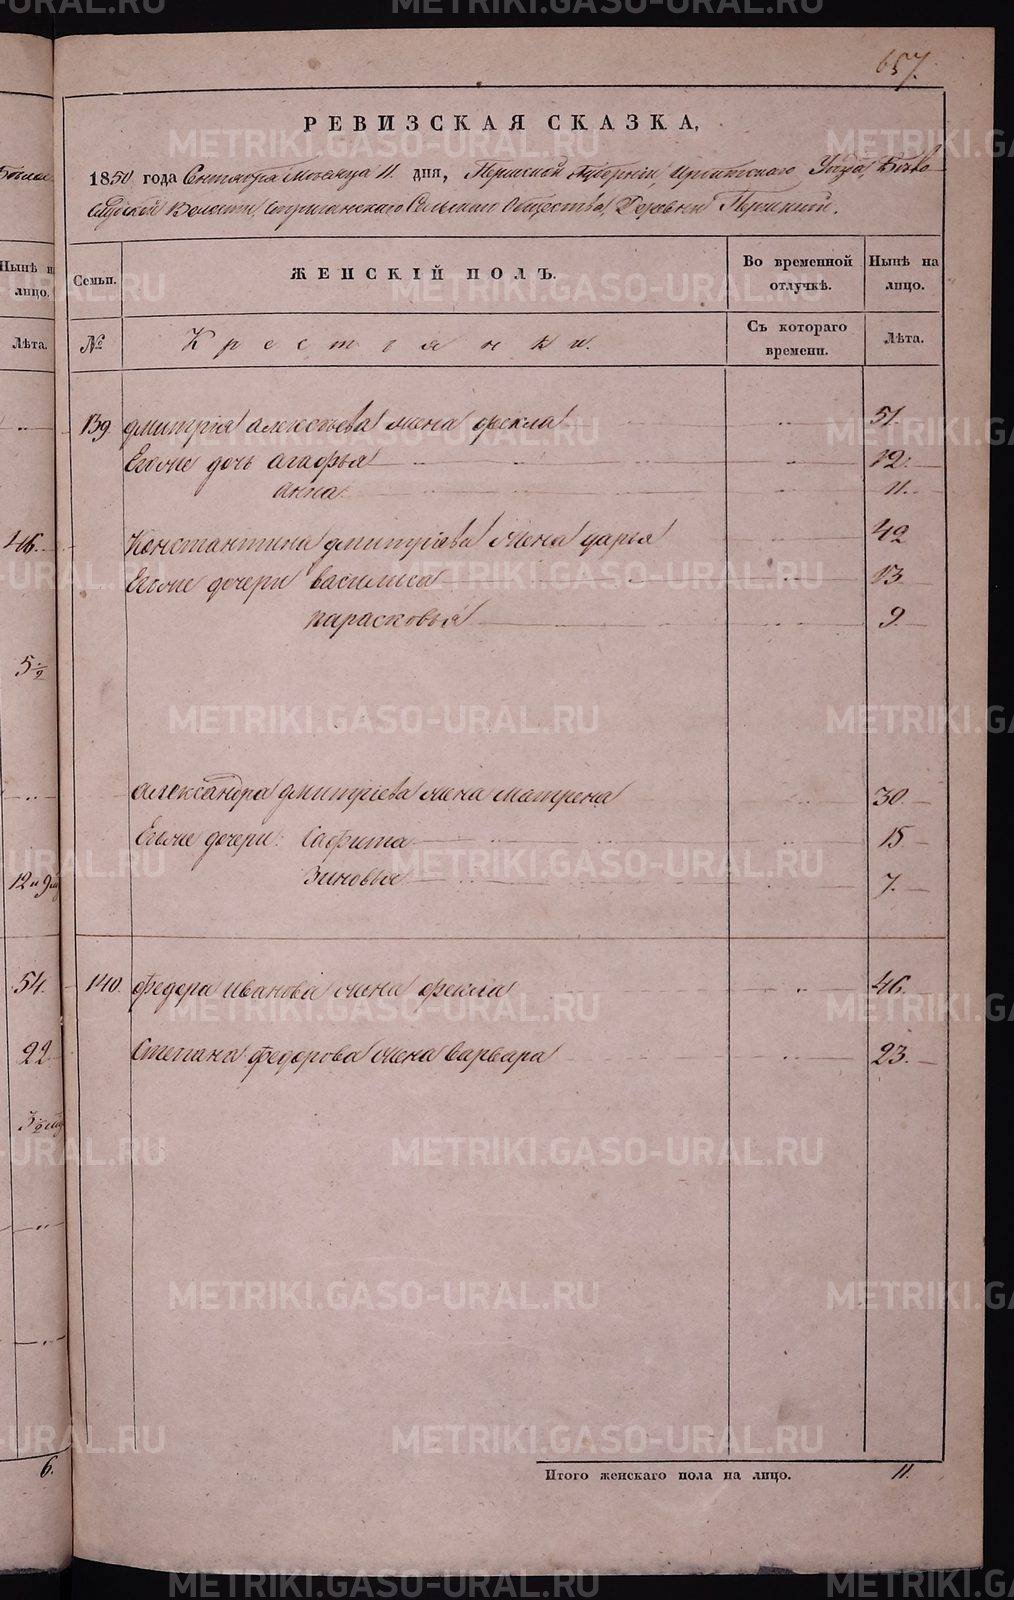 657.
РЕВИЗСКАЯ СКАЗКА,
1850 года Сентября Месяца 11 дня, Пермской Губернии, Ирбитскаго Уезда, Бело
слудской Волости, Стриганскаго Сельскаго Общества, Деревни
Нынѣ на лицо.
Семьи.
ЖЕНСКІЙ ПОЛЪ.
Во временной отлучкѣ.
Нынѣ на лицо.
Лѣта.
№
Крестьянки.
Съ котораго времени.
Лѣта.
139 Дмитрія Алексѣева жена Фекла 51.
Егоже дочь Агафья 12.
Анна 11.
46. Константина Дмитріева жена Дарья 42
Егоже дочери Василиса 13.
Парасковья 9.
5 1/2
Александра Дмитріева жена Матрена 30.
Егоже дочери: 15
12 и 9 Зиновья 7.
54. 140. Федора Иванова жена Фекла 46.
22 Степана Федорова жена Варвара 23.
6. Итого женскаго пола на лицо. 11.
METRIKI.GASO-URAL.RU